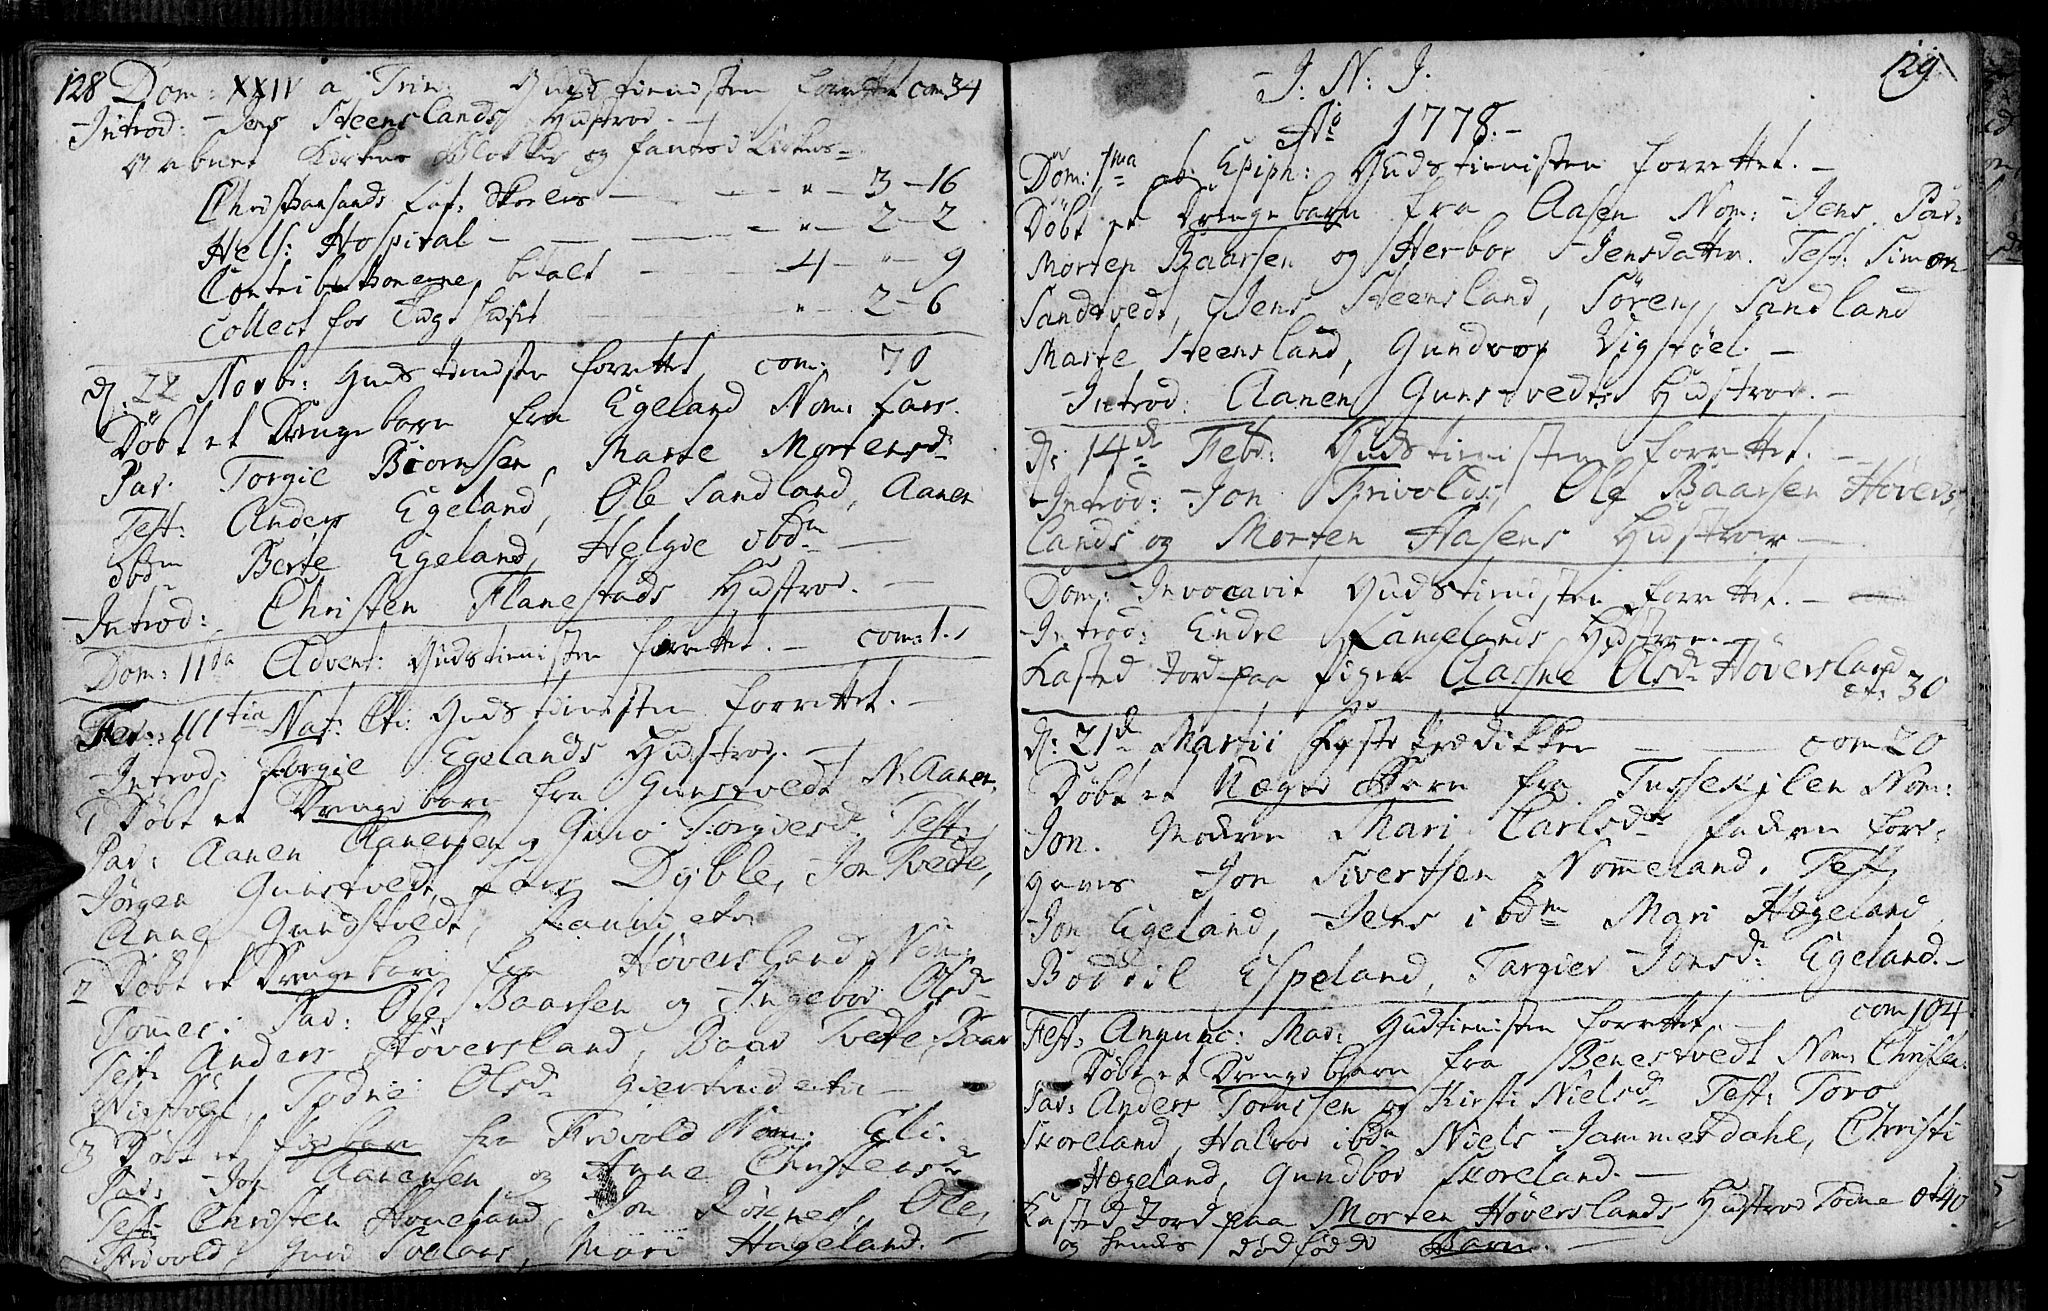 128 Dom: XXIV a Trin: Gudstienisten forrettet com 34
Introd: Jens Heenslands Hustroe. -
Aabnet Kirkens Blokker og fantes i Kirkens -
Christiansands Cat: Skoeles - " - 3 - 16
Hels: Hospital - " - 2 - 2
Contributionerne betalt - 4 - " - 9
Collect for Tugthuset " - 2 - 6
d. 22 Novb: Gudstienisten forrettet com: 70
Døbt et Drengebarn fra Egeland Nom: Lars.
Par: Torgie Biornssen, Marte Mortensd.
Test: Anders Egeland, Ole Sandland, Aanen
ibdm Berte Egeland, Helgie ibdm -
Introd: Christen Flanestads Hustroe. -
Dom: IIda Advent: Gudstienisten forrettet. - com: 1.
Fer: IIItia Nat: Cti: Gudstienisten forrettet. -
Introd: Torgie Egelands Hustroe. -
1 Døbt et Drengebarn fra Gunstvedt N: Aanen
Par: Aanen Aanensen og Guro Torgiesd. Test:
Jørgen Gunstvedt, Lars Dyble, Jon Tvedte,
Anne Gundstvedt,
2 Døbt et Drengebarn fra Høversland Nom:
Tommes: Par: Ole Baarsen og Ingebor Olsd.
Test: Anders Høversland, Baar Tvedte, Baar
Vigstøel, Todne Olsd.
3 Døbt et Pigebarn fra Frivold Nom: Eli.
Par: Jon Aanensen og Anne Christensd.
Test: Christen Honeland, Jon Røknes, Ole
Frivold, Mari Hageland. -
129
I: N: I.
Ao 1778. -
Dom: 1ma ab: Epiph: Gudstienisten forrettet. -
Døbt et Drengebarn fra Aasen Nom: Jens Par:
Morten Baarsen og Herbor Jensdatter. Test: Simon
Sandtvedt, Jens Heensland, Søren Sandland
Marte Heensland, Gundvor Vigstøel. -
Introd: Aanen Gunstvedts Hustroe. -
d: 14d. Febr: Gudstienisten forrettet. -
Introd: Jon Frivolds, Ole Baarsen Høvers-
lands og Morten Aasens Hustroer -
Dom: Invocavit Gudstienisten forrettet. -
Introd: Endre Langelands Hustroe. -
Kasted Jord paa Pigen Aasne Olsd. Høversland
æt: 30
d: 21d. Martii Første Prædikken - com 20
Døbt et Uægte Barn fra Tusseknilen Nom:
Jon. Moderen Mari Carlsd. Faderen fore-
gaves Jon Sivertsen Nommeland. Test:
Jon Egeland, Jens ibdm Mari Hægeland
Boddil Espeland, Targier Jonsd: Egeland. -
Fest: Annunc: Mar: Gudstienisten forrettet. - com 104
Døbt et Drengebarn fra Benestvedt Nom: Christen
Par: Anders Tornssen og Kirsti Nielsd. Test: Toro
Skoreland, Halvor ibdm Niels Jammerdahl, Christi
Hægeland, Gundbor Skoreland. -
Kasted Jord paa Morten Høverslands Hustroe Todne æt 40
og hendes dødfødde Barn. -